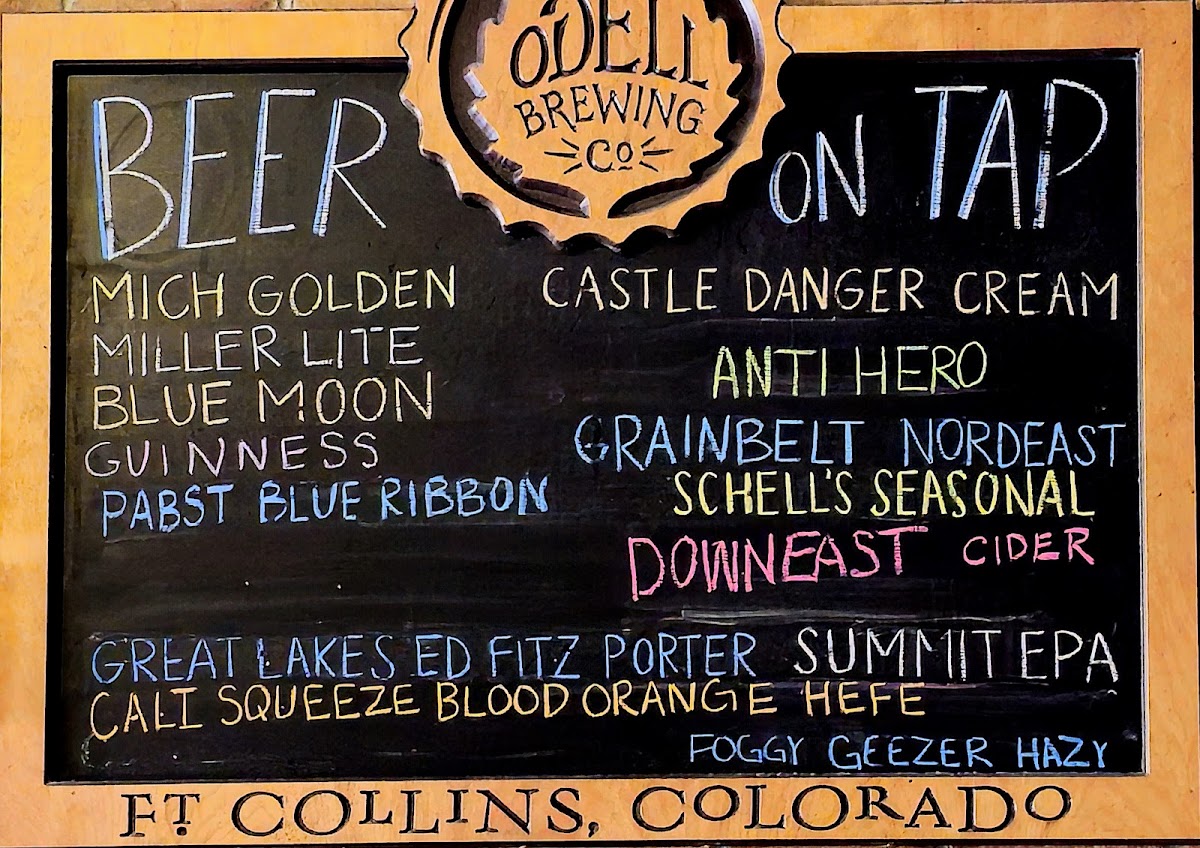 ODELL
BREWING
Co
BEER
ON TAP
MICH GOLDEN
MILLER LITE
BLUE MOON
GUINNESS
PABST BLUE RIBBON
CASTLE DANGER CREAM
ANTI HERO
GRAINBELT NORDEAST
SCHELL'S SEASONAL
DOWNEAST CIDER
GREAT LAKES ED FITZ PORTER
SUMMIT EPA
CALI SQUEEZE BLOOD ORANGE HEFE
FOGGY GEEZER HAZY
FT. COLLINS, COLORADO